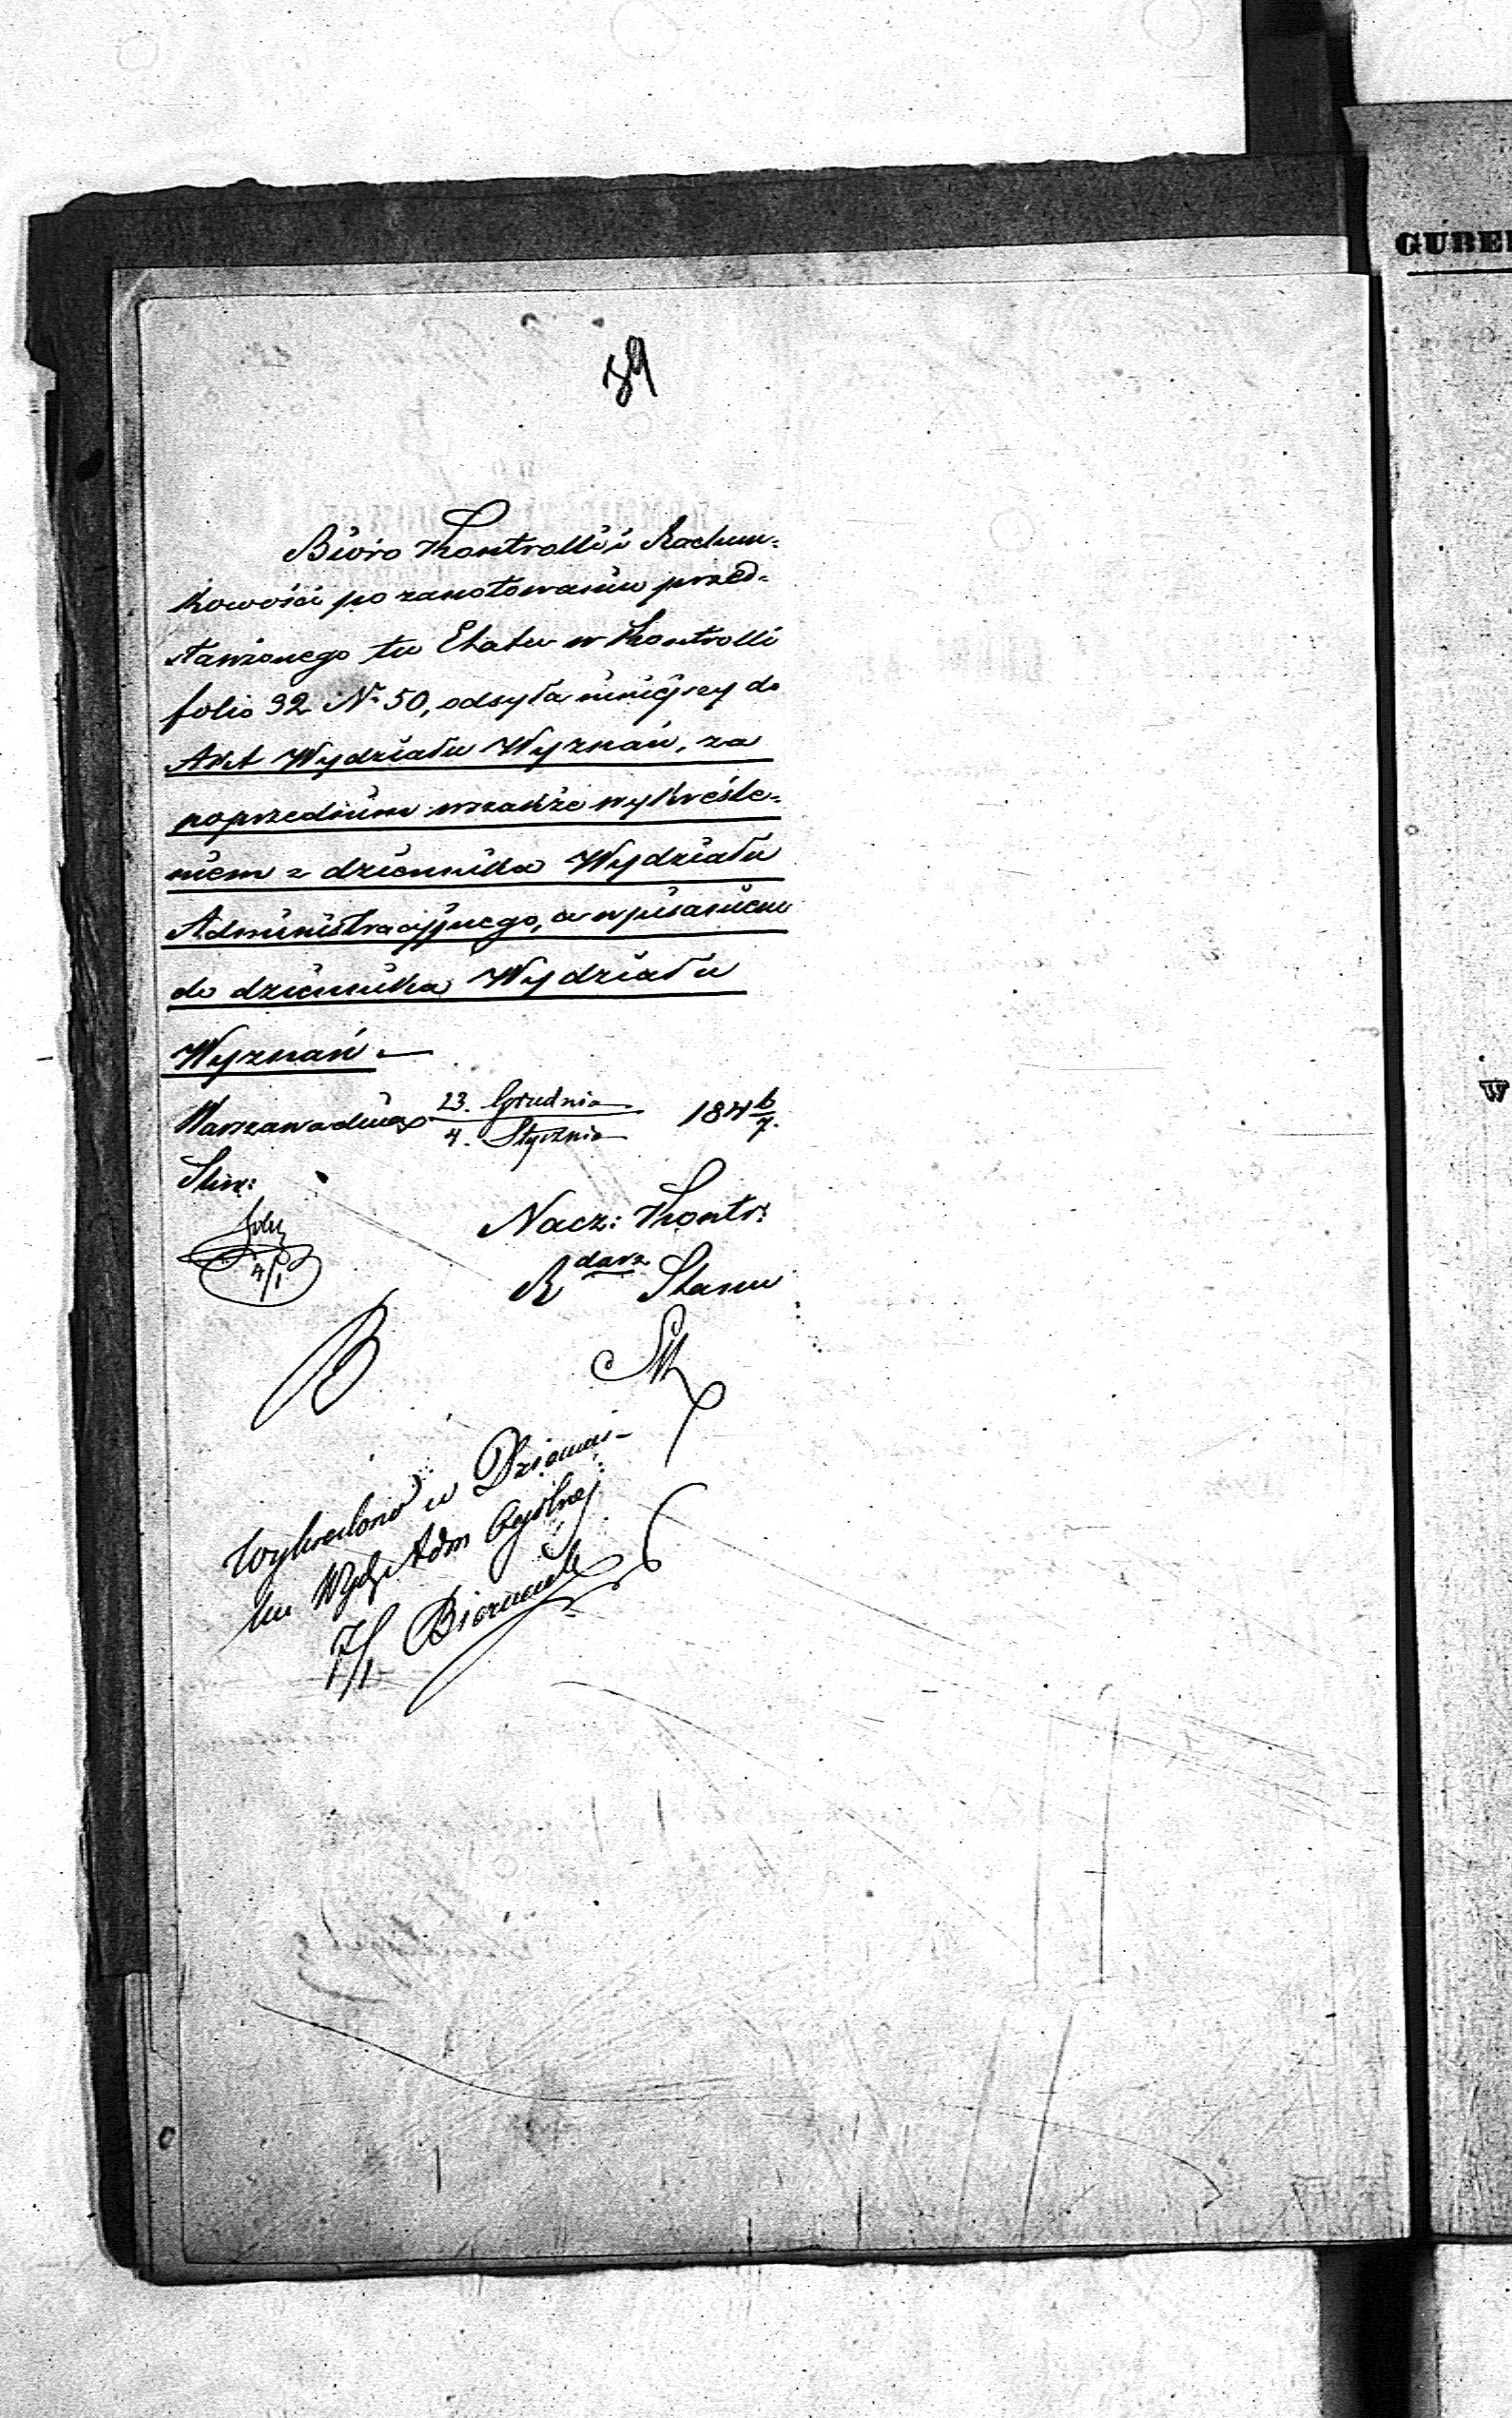 39
Biuro Kontrolli i Rachun=
kowości po zanotowaniu przed=
stawionego tu Etatu w Kontrolli
folio 32 N° 50, odsyła niniejszy do
Akt Wydziału Wyznań, za
poprzednim wszakże wykreśle=
niem z dziennika Wydziału
Administracyjnego, a wpisaniem
do dziennika Wydziału
Wyznań.—
Warszawa dnia 23. Grudnia / 4. Stycznia 184 6/7.
Nacz: Kontr:
R darz Stanu
4/1
Wykreślono w Dzienni-
ku Wydz Adm Ogólnej
7/1
GUBE
W